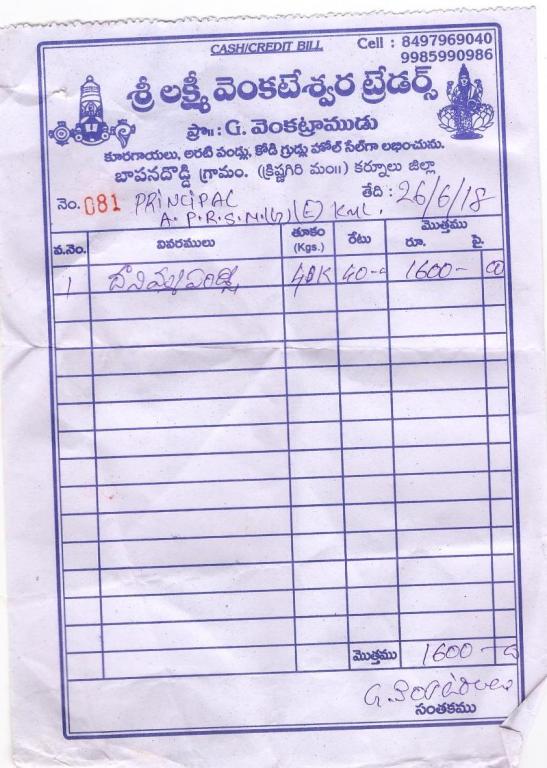 CASH/CREDIT BILL
Cell : 8497969040
9985990986
శ్రీ లక్ష్మీ వెంకటేశ్వర ట్రేడర్స్
ప్రొ॥: G. వెంకట్రాముడు
కూరగాయలు, అరటి పండ్లు, కోడి గ్రుడ్లు హోల్ సేల్‌గా లభించును.
బాపనదొడ్డి గ్రామం. (క్రిష్ణగిరి మం॥) కర్నూలు జిల్లా
నెం. 081 PRINCIPAL తేది : 26/6/18
A.P.R.S.M.(G)(E) KNL.
వ.నెం. వివరములు తూకం (Kgs.) రేటు మొత్తము రూ. పై.
1 దానిమ్మ పండ్లు 40K 40-0 1600- 00
మొత్తము 1600-
సంతకము